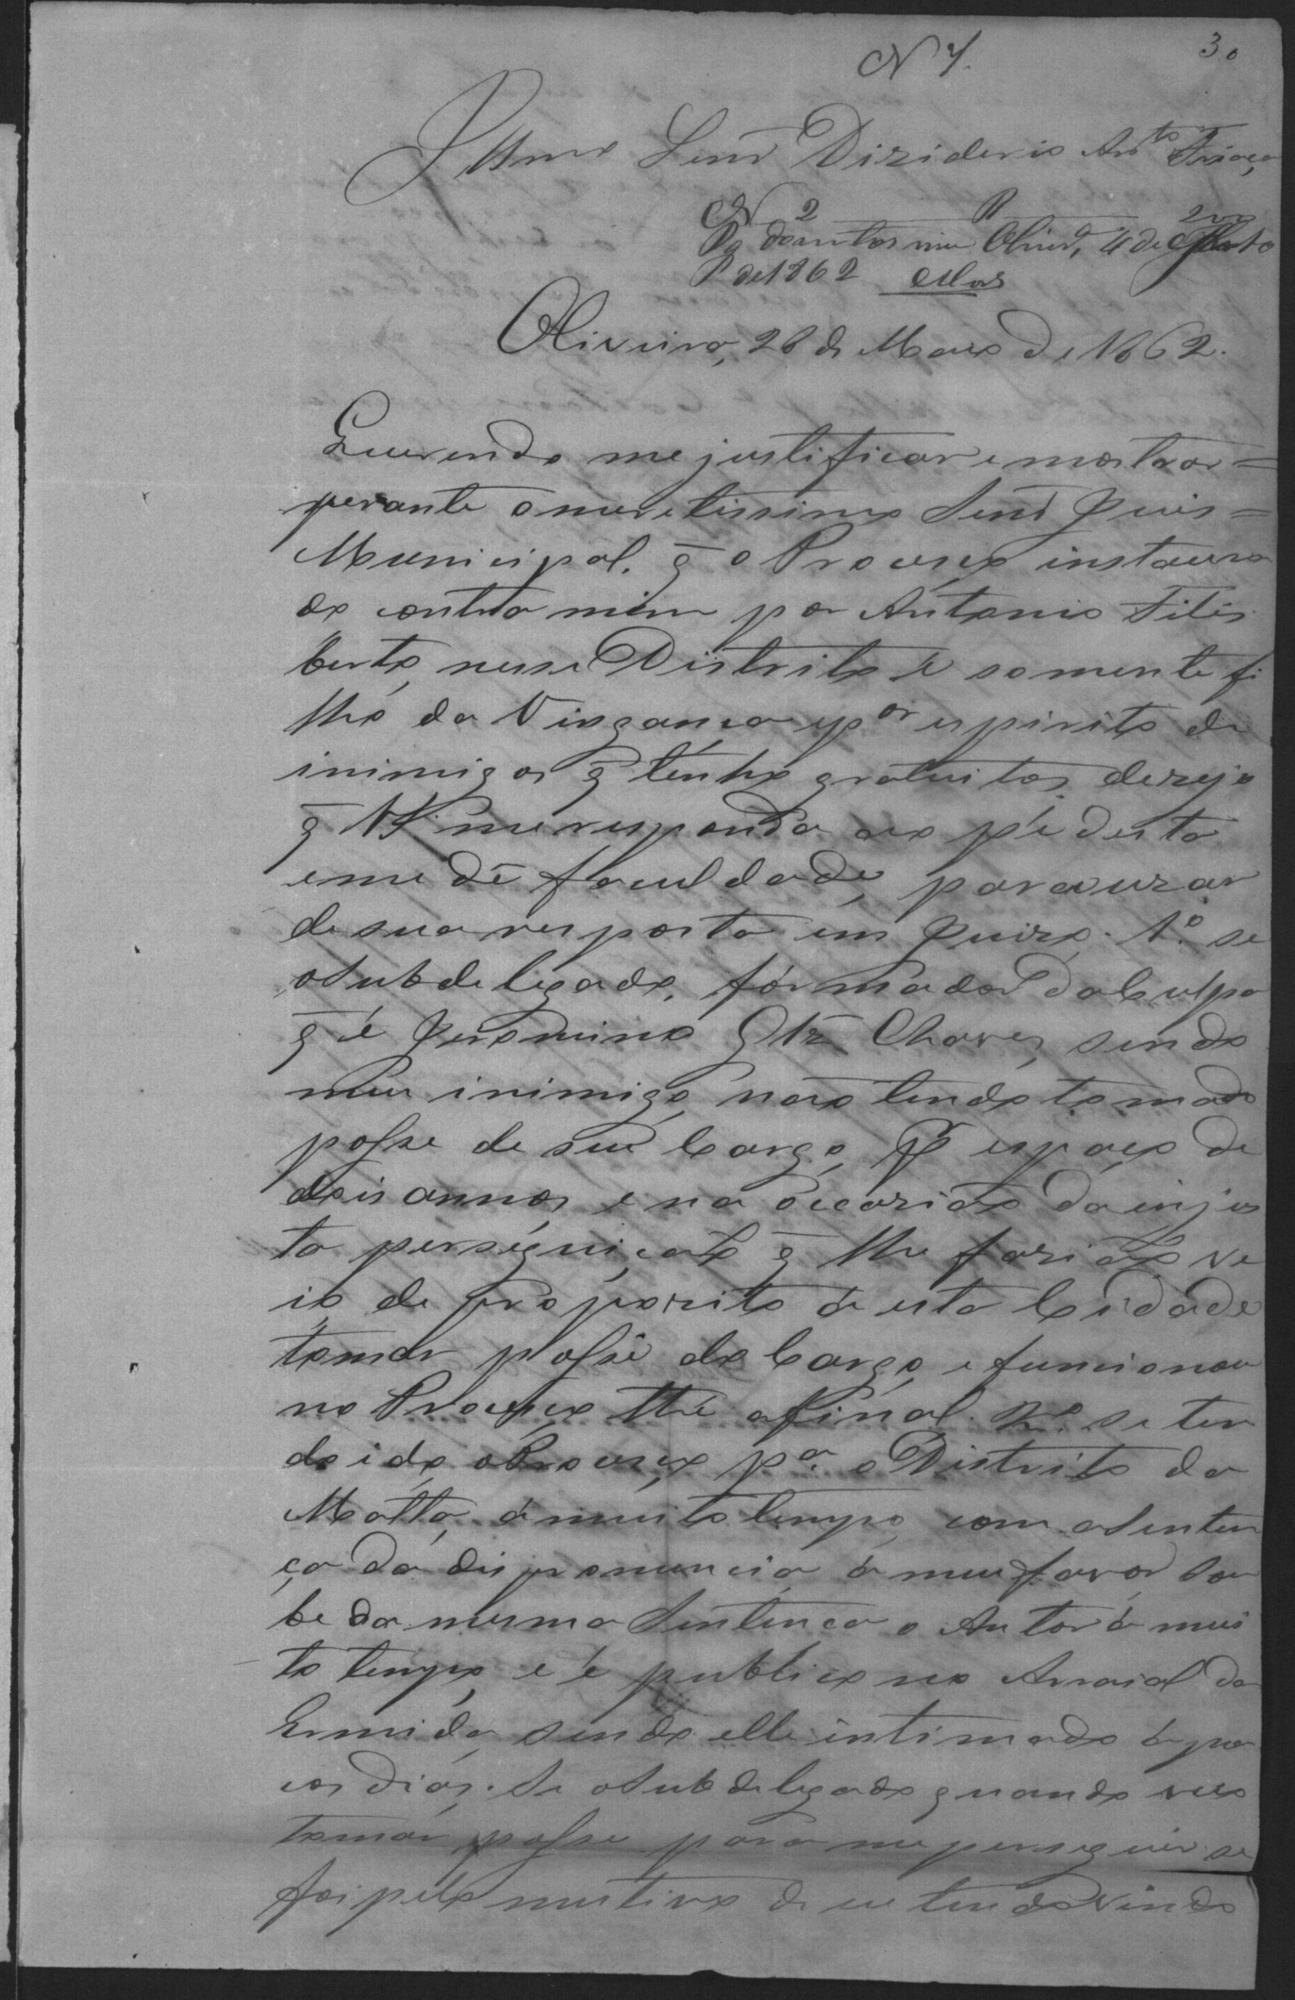 N 7.
30
Illmo Senr Diziderio Anto
N 2
Oliveira, 28 de Março de 1862.
Querendo me justificar e mostrar=
perante o meretissimo Senr Juis=
Municipal. q̃ o Proceço instaura
do contra mim por Antonio Felis
berto, nesse Distrito é somente fi
lho da Vingança e por espirito de
inimigos q̃ tenho gratuitos, dezejo
q̃ VS. me responda ao pé desta
e me dê faculdade, para uzar
de sua resposta em Juizo. 1º. se
o Subdelegado, formador da Culpa
q̃ é Jeronimo Glz̃ Chaves, sendo
meu inimigo, não tendo tomado
posse de seu Cargo, Pr espaço de
dois annos, e na occazião da injus
ta perseguição q̃ me fazião ve
io de proposito á esta Cidade
tomar posse do Cargo, e funcionou
no Proceço thé afinal. 2º. se ten
do ido o Proceço pa. o Distrito da
Matta, á muito tempo, com a Senten
ça da dispronuncia á meu favor sou
be da mesma Sentença o Autor á mui
to tempo, e é publico no Arraial da
Ermida, sendo elle intimado á pou
cos dias. Se o Subdelegado quando veio
tomar posse para me perseguir se
foi pelo motivo de eu tendo vindo